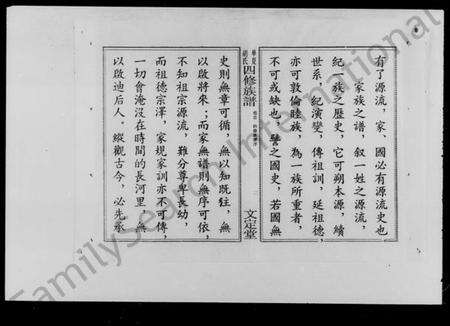 有了源流，家、國必有源流史也
家族之譜，叙一姓之源流，
紀一族之歷史，它可朔本源，續
世系，紀演變，傳祖訓，延祖德，
亦可敦倫睦族，為一族所重者，
不可或缺也。譬之國史，若國無
四修族譜
文定堂
史則無章可循，無以知既往，無
以啟將來；而家無譜則無序可依，
不知祖宗源流，難分尊卑長幼，
而祖德宗澤，家規家訓亦不可傳，
一切會淹沒在時間的長河里，無
以啟迪后人。縱觀古今，必先承
FamilySearch International